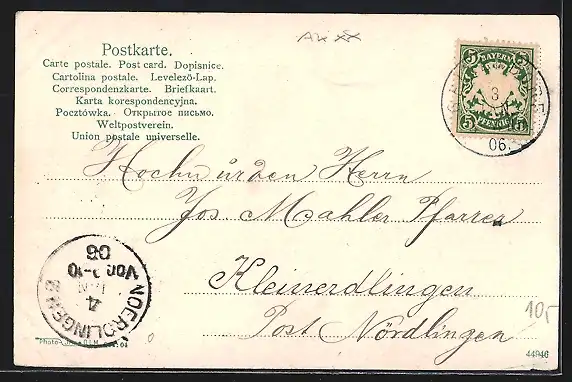 Postkarte.
Carte postale. Post card. Dopisnice.
Cartolina postale. Levelező-Lap.
Correspondenzkarte. Briefkaart.
Karta korespondencyjna.
Pocztówka. Открытое письмо.
Weltpostverein.
Union postale universelle.
BAYERN
5 5
PFENNIG
3
06.
Hochwürden Herrn
Jos. Mahler Pfarrer
Kleinerdlingen
Post Nördlingen
NOERDLINGEN
4
JAN
VOR 9-10
06
10,-
44946